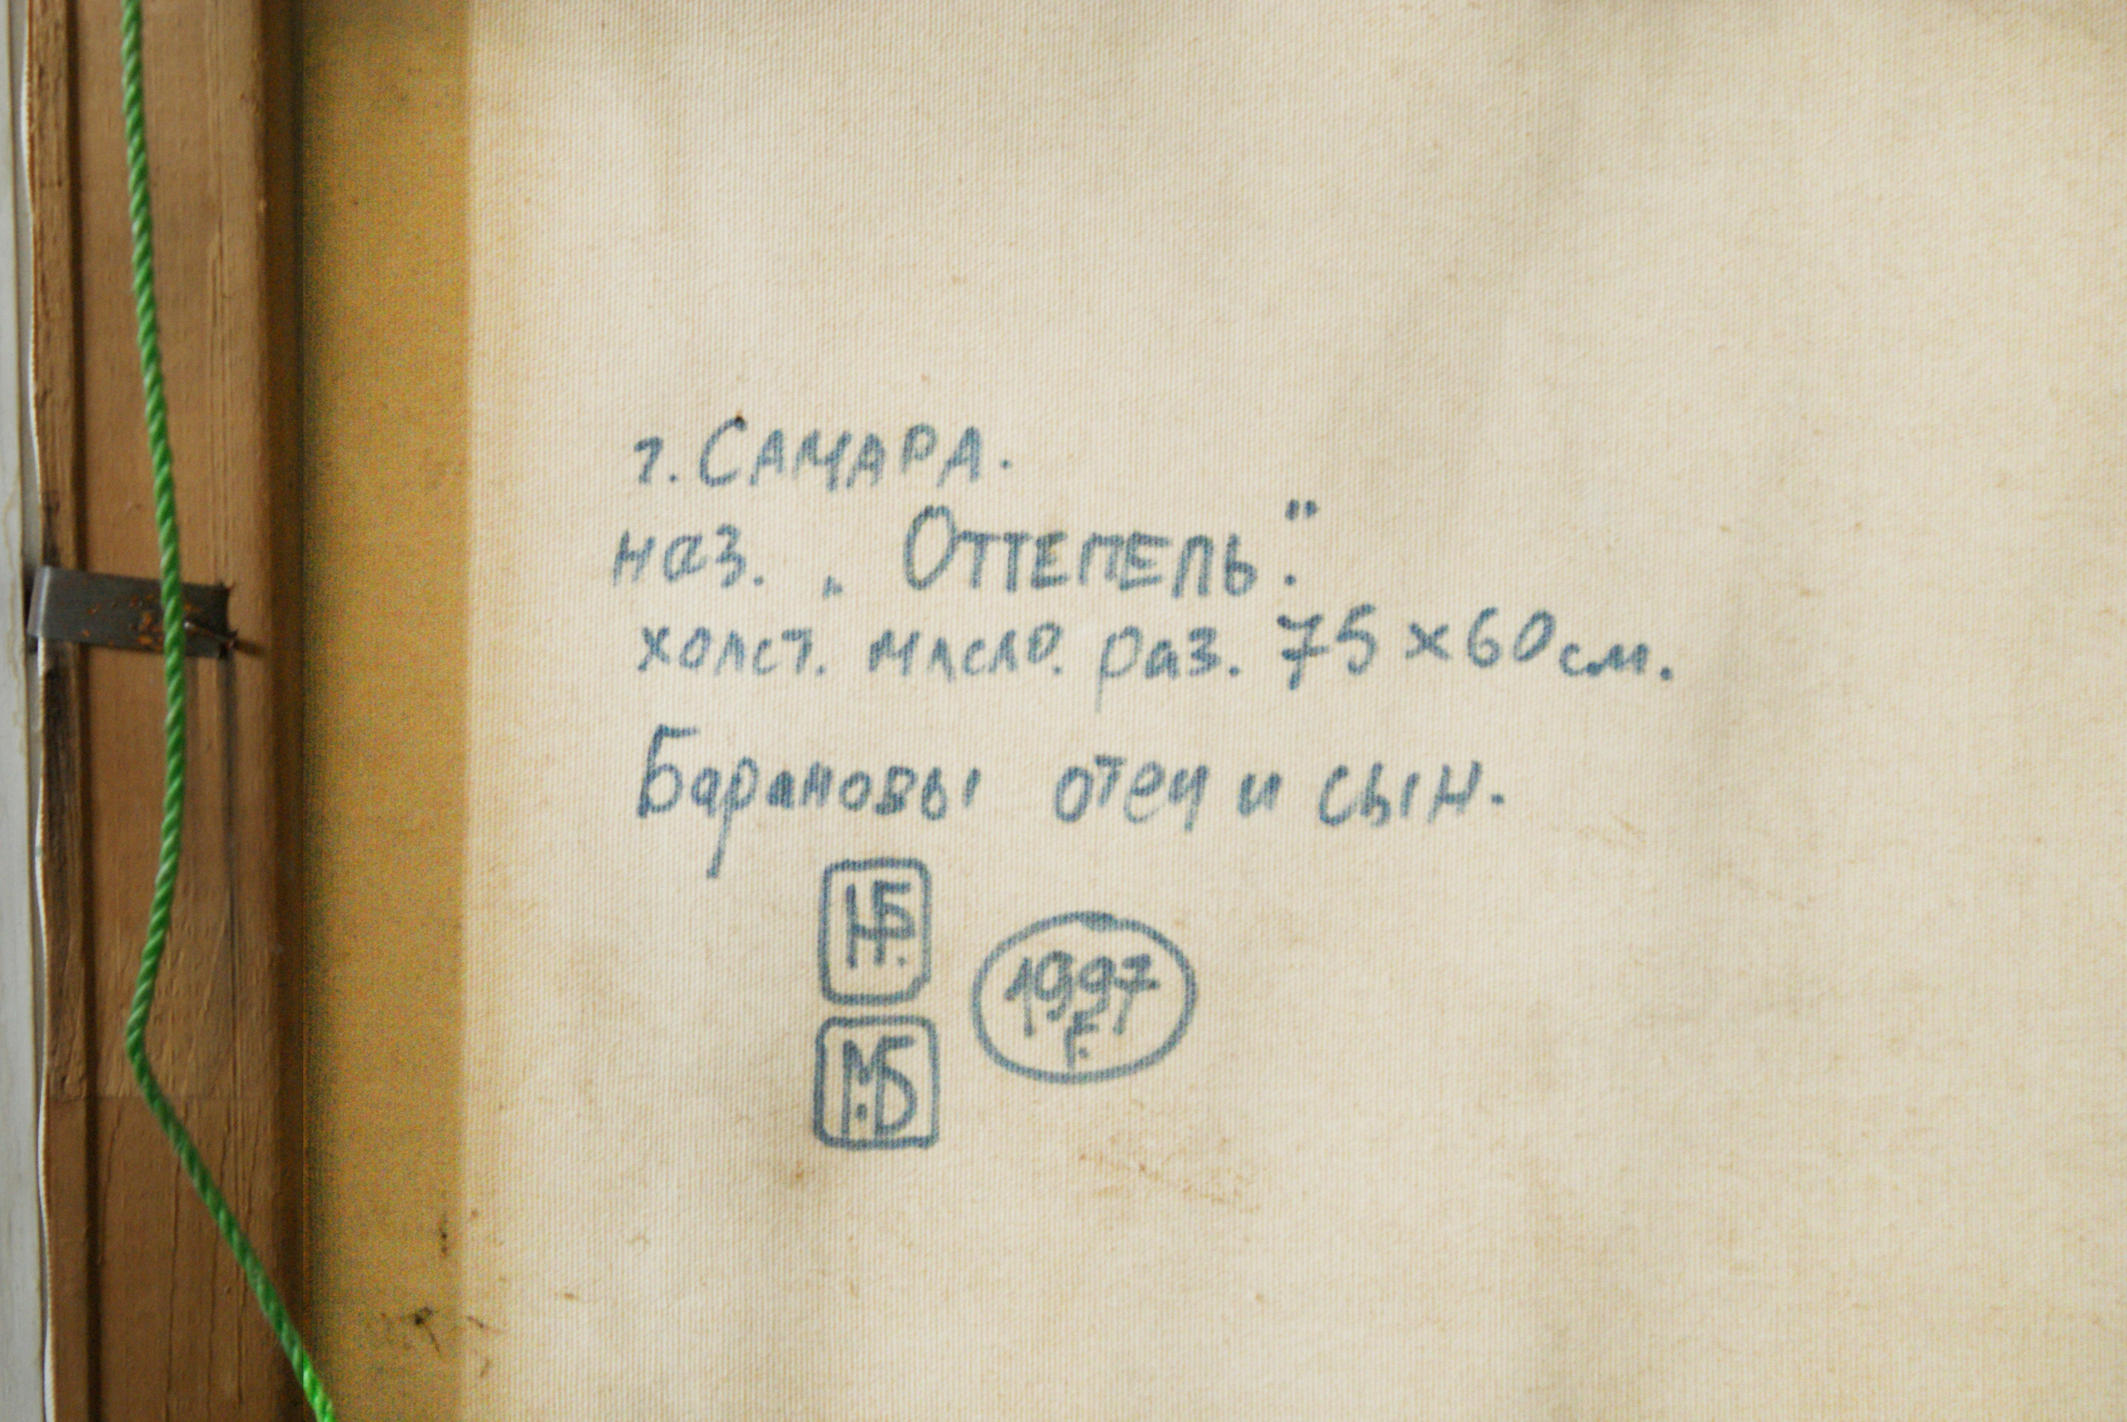 г. САМАРА.
наз. „ ОТТЕПЕЛЬ."
холст. масло. раз. 75 x 60 см.
Барановы отец и сын.
НБ.
1997
г.
М.Б